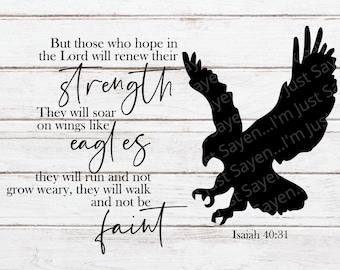 But those who hope in
the Lord will renew their
strength
They will soar
on wings like
eagles
they will run and not
grow weary, they will walk
and not be
faint
Isaiah 40:31
Just Sayen...I'm Just
Sayen...I'm Just Sayen...I'm Just
Sayen...I'm Just Sayen